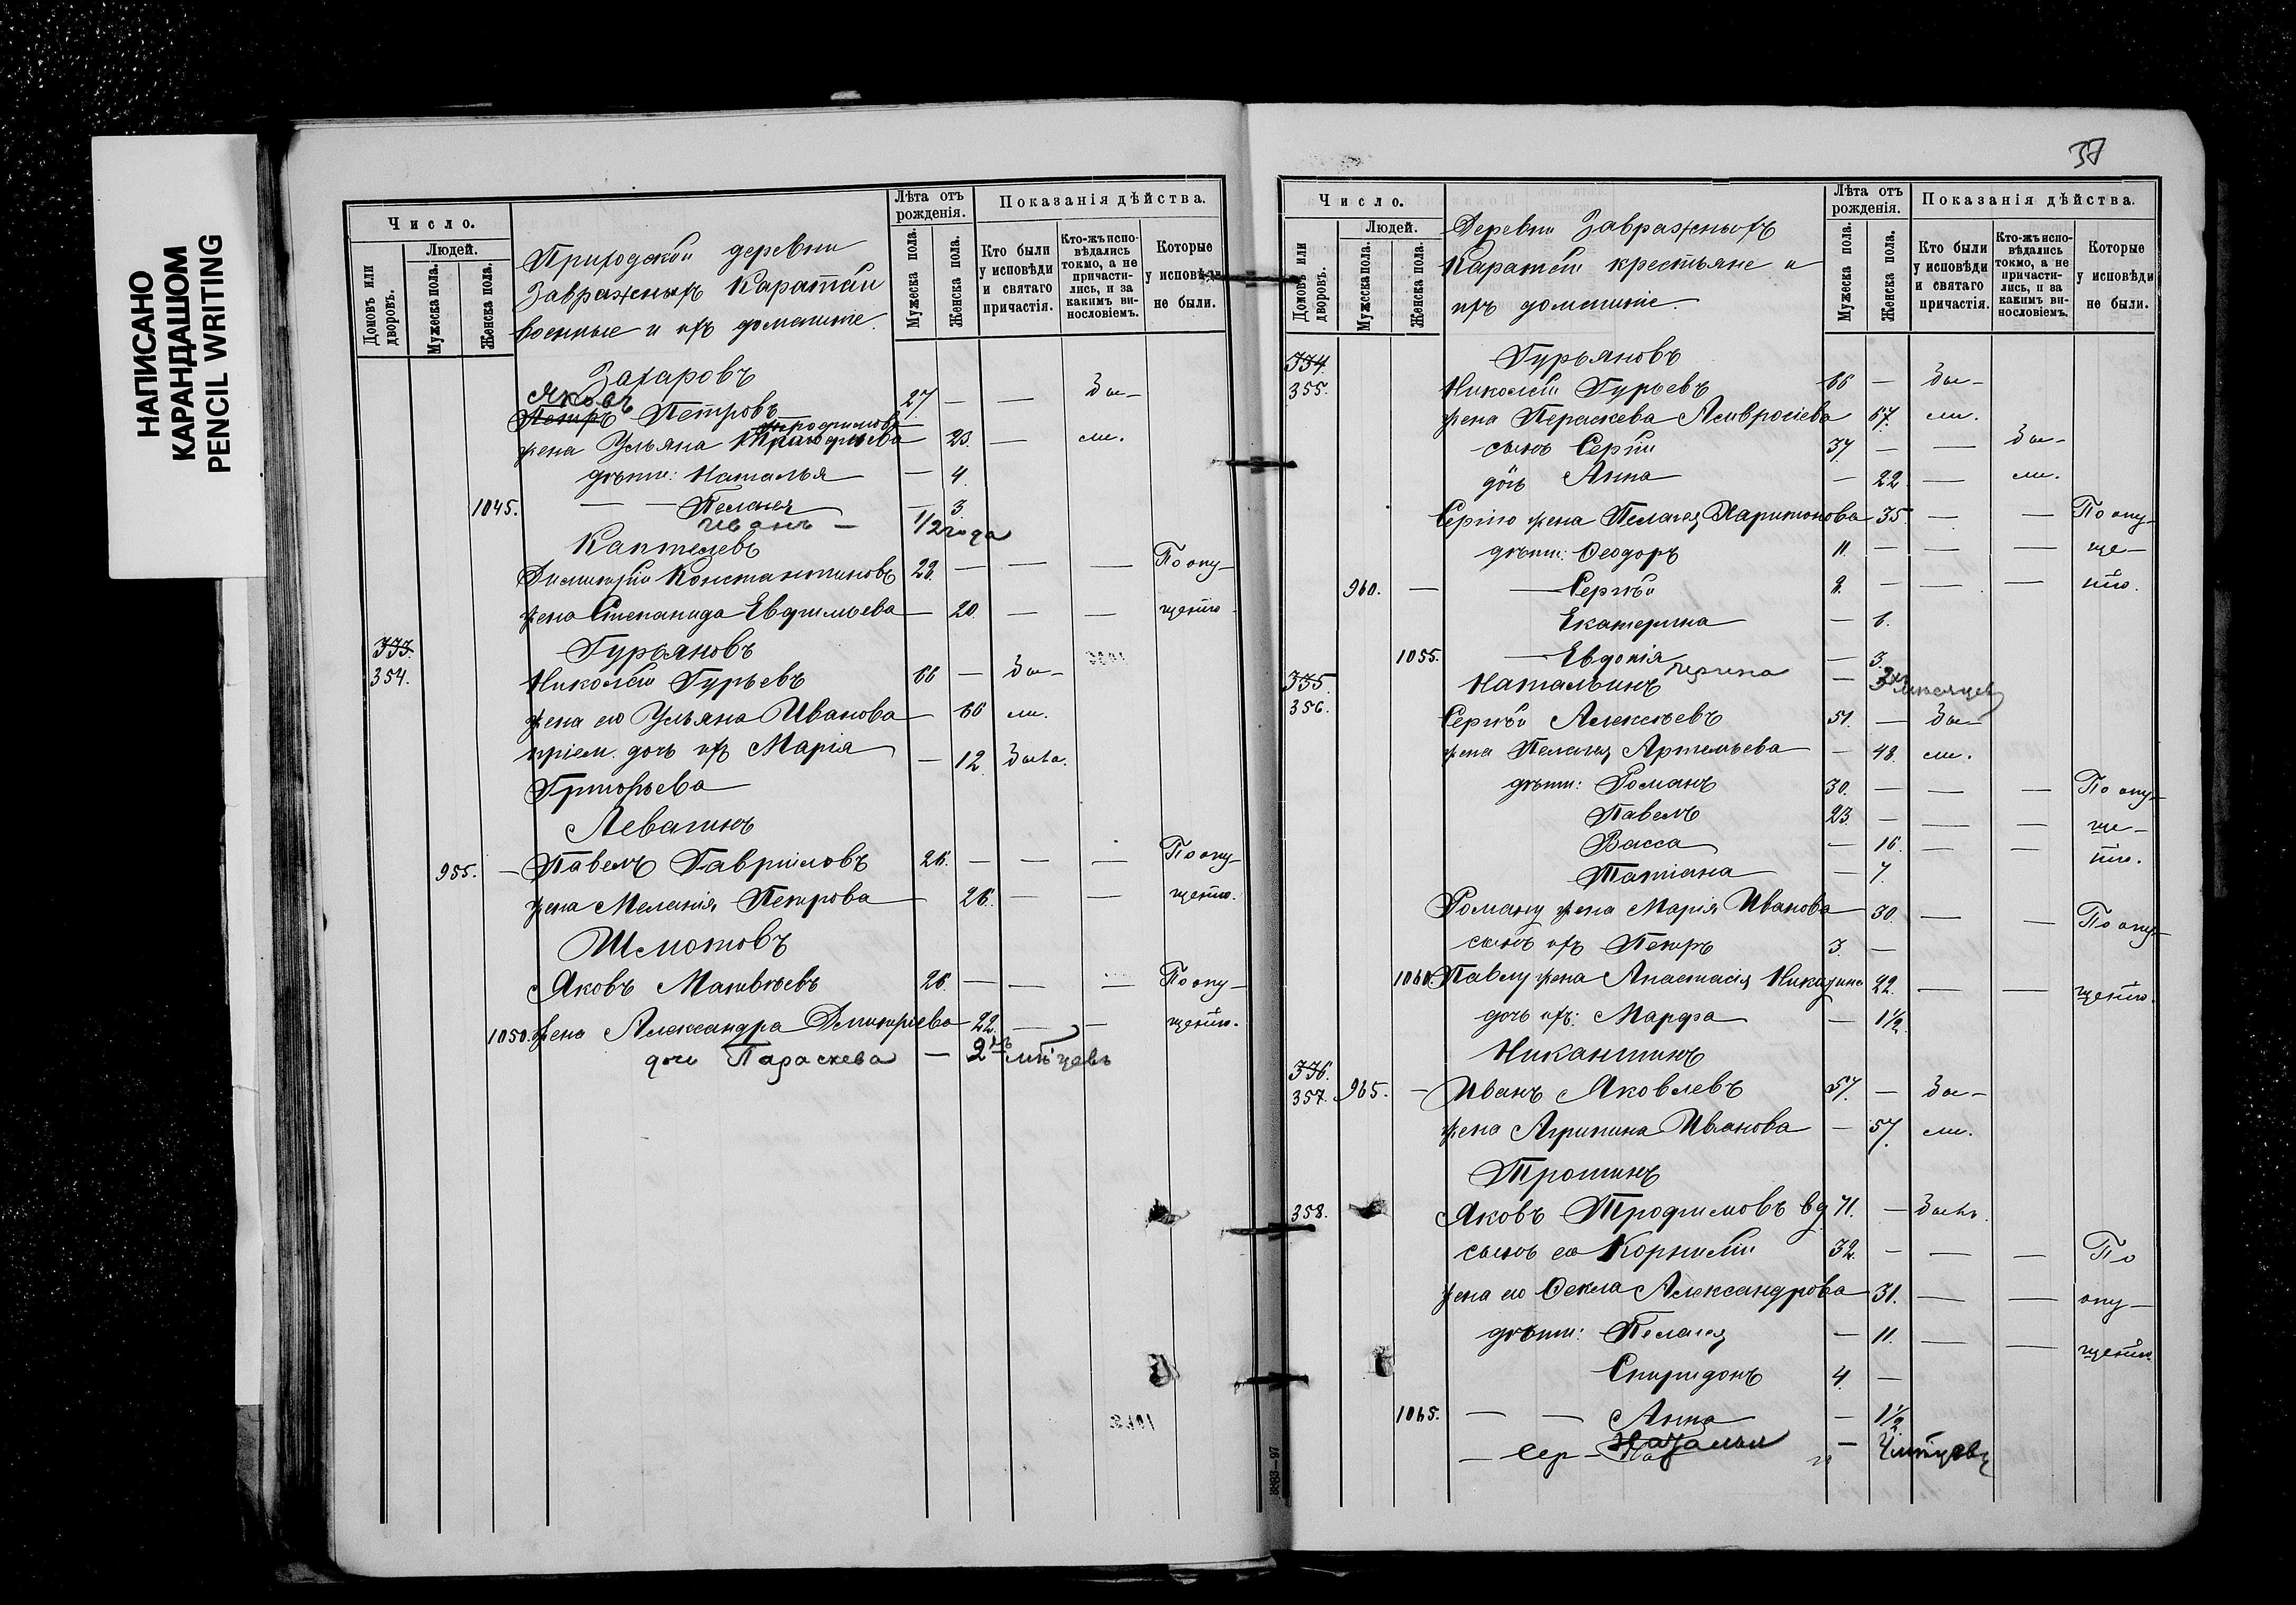 НАПИСАНО
КАРАНДАШОМ
PENCIL WRITING
Число.
Людей.
Домовъ или дворовъ.
Мужеска пола.
Женска пола.
Приходской деревни
Завражныхъ Каратай
военные и ихъ домашніе.
Лѣта отъ рожденія.
Мужеска пола.
Женска пола.
Показанія дѣйства.
Кто были у исповѣди и святаго причастія.
Кто-жъ исповѣдались токмо, а не причастились, и за какимъ винословіемъ.
Которые у исповѣди не были.
Захаровъ
Яковъ
Петръ Петровъ 27 — — Бы-
Трофимова
жена Ульяна 23. — ли.
дѣти: Наталья — 4.
1045. — — Пелагея — 3
Иванъ — 1/2 года
Каптелевъ
Димитрій Константиновъ 23. — — — По опу-
жена Степанида Евфимьева — 20. — — щенію.
333. Гурьяновъ
354. Николай Гурьевъ 66 — Бы-
жена его Ульяна Иванова — 66 ли.
пріем. дочь ихъ Марія — 12. Была.
Григорьева
Левагинъ
955. — Павелъ Гавриловъ 26. — — — По опу-
жена Меланія Петрова — 26. — — щенію.
Шмотовъ
Яковъ Матвѣевъ 26. — — — По опу-
1050. жена Александра Дмитріева 22. — — щенію.
дочь Параскева — 2хъ мѣ-цевъ
37
Число.
Людей.
Домовъ или дворовъ.
Мужеска пола.
Женска пола.
Деревни Завражныхъ
Каратай крестьяне и
ихъ домашніе.
Лѣта отъ рожденія.
Мужеска пола.
Женска пола.
Показанія дѣйства.
Кто были у исповѣди и святаго причастія.
Кто-жъ исповѣдались токмо, а не причастились, и за какимъ винословіемъ.
Которые у исповѣди не были.
334. Гурьяновъ
355. Николай Гурьевъ 66 — Бы-
жена Параскева Амвросіева 67. ли.
сынъ Сергій 37. — — Бы-
дочь Анна — 22. — ли.
Сергію жена Пелагея Харитонова 35. — — По опу-
дѣти: Ѳеодоръ 11. — — — ще-
960. — — Сергѣй 8. — — — нію.
Екатерина — 6.
1055. — Евдокія — 3.
335. Натальинъ Ирина — 3 мѣсяцев
356. Сергѣй Алексѣевъ 51. — Бы-
жена Пелагея Артемьева — 48. ли.
дѣти: Романъ 30. — — — По опу-
Павелъ 23. — — — ще-
Васса — 16. — — нію.
Татіана — 7.
Роману жена Марія Иванова 30. — — По опу-
сынъ ихъ Петръ 3. —
1060. Павлу жена Анастасія 22. — — щенію.
дочь ихъ: Марфа — 1½.
336. Никаншинъ
357. 965. — Иванъ Яковлевъ 57. — Бы-
жена Агрипина Иванова — 57. ли.
Трошинъ
358. Яковъ Трофимовъ вд 71. — Былъ.
сынъ его Корнилій 32. — — — По
жена его Ѳекла Александрова 31. — — опу-
дѣти: Пелагея — 11. — — щенію.
Спиридонъ 4. —
1065. — — Анна — 1½.
Наталья —
3883—97